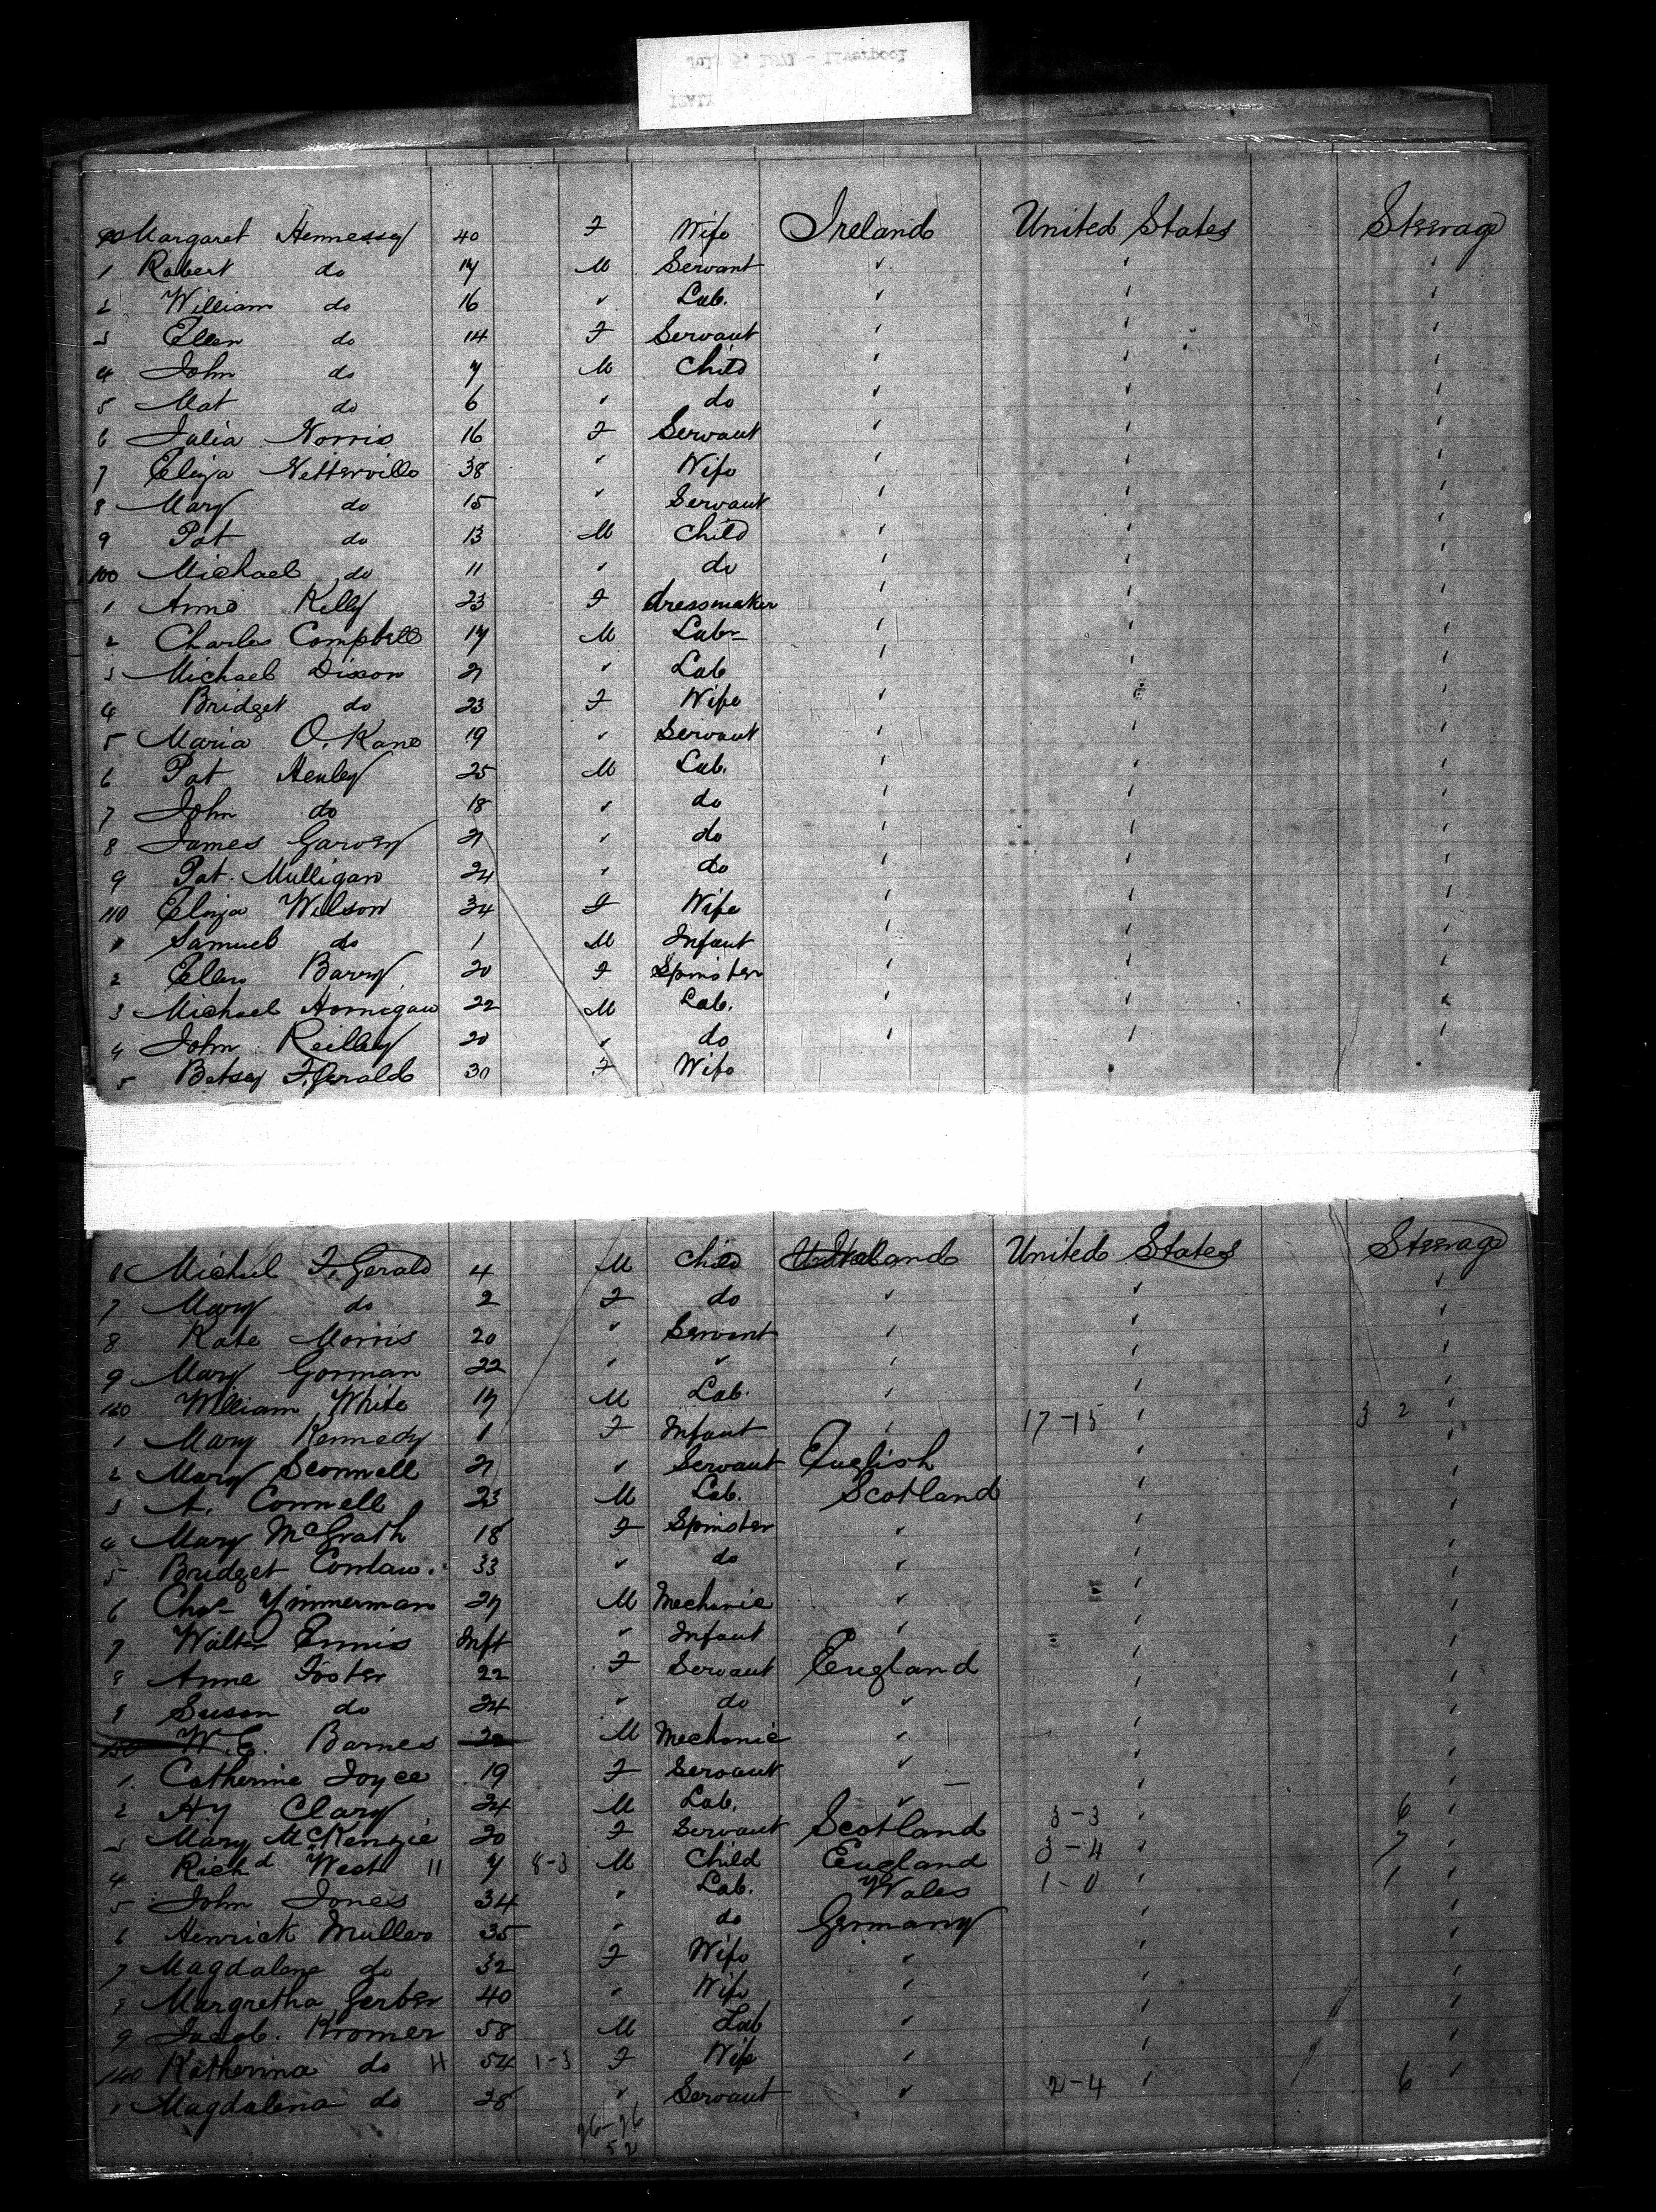 July 5, 1871 - Liverpool
90 Margaret Hennessy 40 F Wife Ireland United States Steerage
1 Robert do 17 M Servant ✓ ' '
2 William do 16 ✓ Lab. ✓ ' '
3 Ellen do 14 F Servant ' ' '
4 John do 7 M Child ' ' '
5 Mat do 6 ✓ do ✓ ' '
6 Julia Norris 16 F Servant ' ' '
7 Eliza Netterville 38 ✓ Wife ' ' '
8 Mary do 15 ✓ Servant ' ' '
9 Pat do 13 M Child ' ' '
100 Michael do 11 ✓ do ' ' '
1 Anne Kelly 23 F dressmaker ' ' '
2 Charles Campbell 17 M Labr ' ' '
3 Michael Dixon 21 ✓ Lab ' ' '
4 Bridget do 23 F Wife ' ' '
5 Maria O. Kane 19 ✓ Servant ' ' '
6 Pat Henley 25 M Lab. ' ' '
7 John do 18 ✓ do ' ' '
8 James Garvey 21 ✓ do ' ' '
9 Pat. Mulligan 24 ' do ' ' '
110 Eliza Wilson 34 F Wife ' ' '
1 Samuel do 1 M Infant ' ' '
2 Ellen Barry 20 F Spinster ' ' '
3 Michael Hornigan 22 M Lab. ' ' '
4 John Reilley 20 ✓ do ' ' '
5 Betsey F.Gerald 30 F Wife
6 Michul F.Gerald 4 M Child Ireland United States Steerage
7 Mary do 2 F do ✓ ' '
8 Kate Morris 20 ✓ Servant ' ' '
9 Mary Gorman 22 ✓ ✓ ' ' '
120 William White 17 M Lab. ' ' '
1 Mary Kennedy 1 F Infant ' 17-15 ' 3 2 '
2 Mary Sconnell 21 ✓ Servant English ' '
3 A. Connell 23 M Lab. Scotland ' '
4 Mary McGrath 18 F Spinster ✓ ' '
5 Bridget Conlaw. 33 ✓ do ✓ ' '
6 Chas Zimmerman 27 M Mechanic ✓ ' '
7 Walter Ennis Inft ✓ Infant ' ' '
8 Anne Foster 22 F Servant England ' '
9 Susan do 24 ✓ do ✓ ' '
130 W.E. Barnes 22 M Mechanic ✓ ' '
1. Catherine Joyce 19 F Servant ✓ ' '
2 Hy Clary 24 M Lab. ✓ ' '
3 Mary McKenzie 20 F Servant Scotland 3-3 ' 6 '
4 Richd West 11 7 8-3 M Child England 3-4 ' 7 '
5 John Jones 34 ✓ Lab. Wales 1-0 ' 1 '
6 Henrick Muller 35 ✓ do Germany ' '
7 Magdalene do 32 F Wife ' ' '
8 Margretha Gerber 40 ✓ Wife ' ' '
9 Jacob. Kromer 58 M Lab ✓ ' '
140 Katherina do H 54 1-3 F Wife ' ' '
1 Magdalena do 28 ✓ Servant ✓ 2-4 ' 6 '
26-26
52